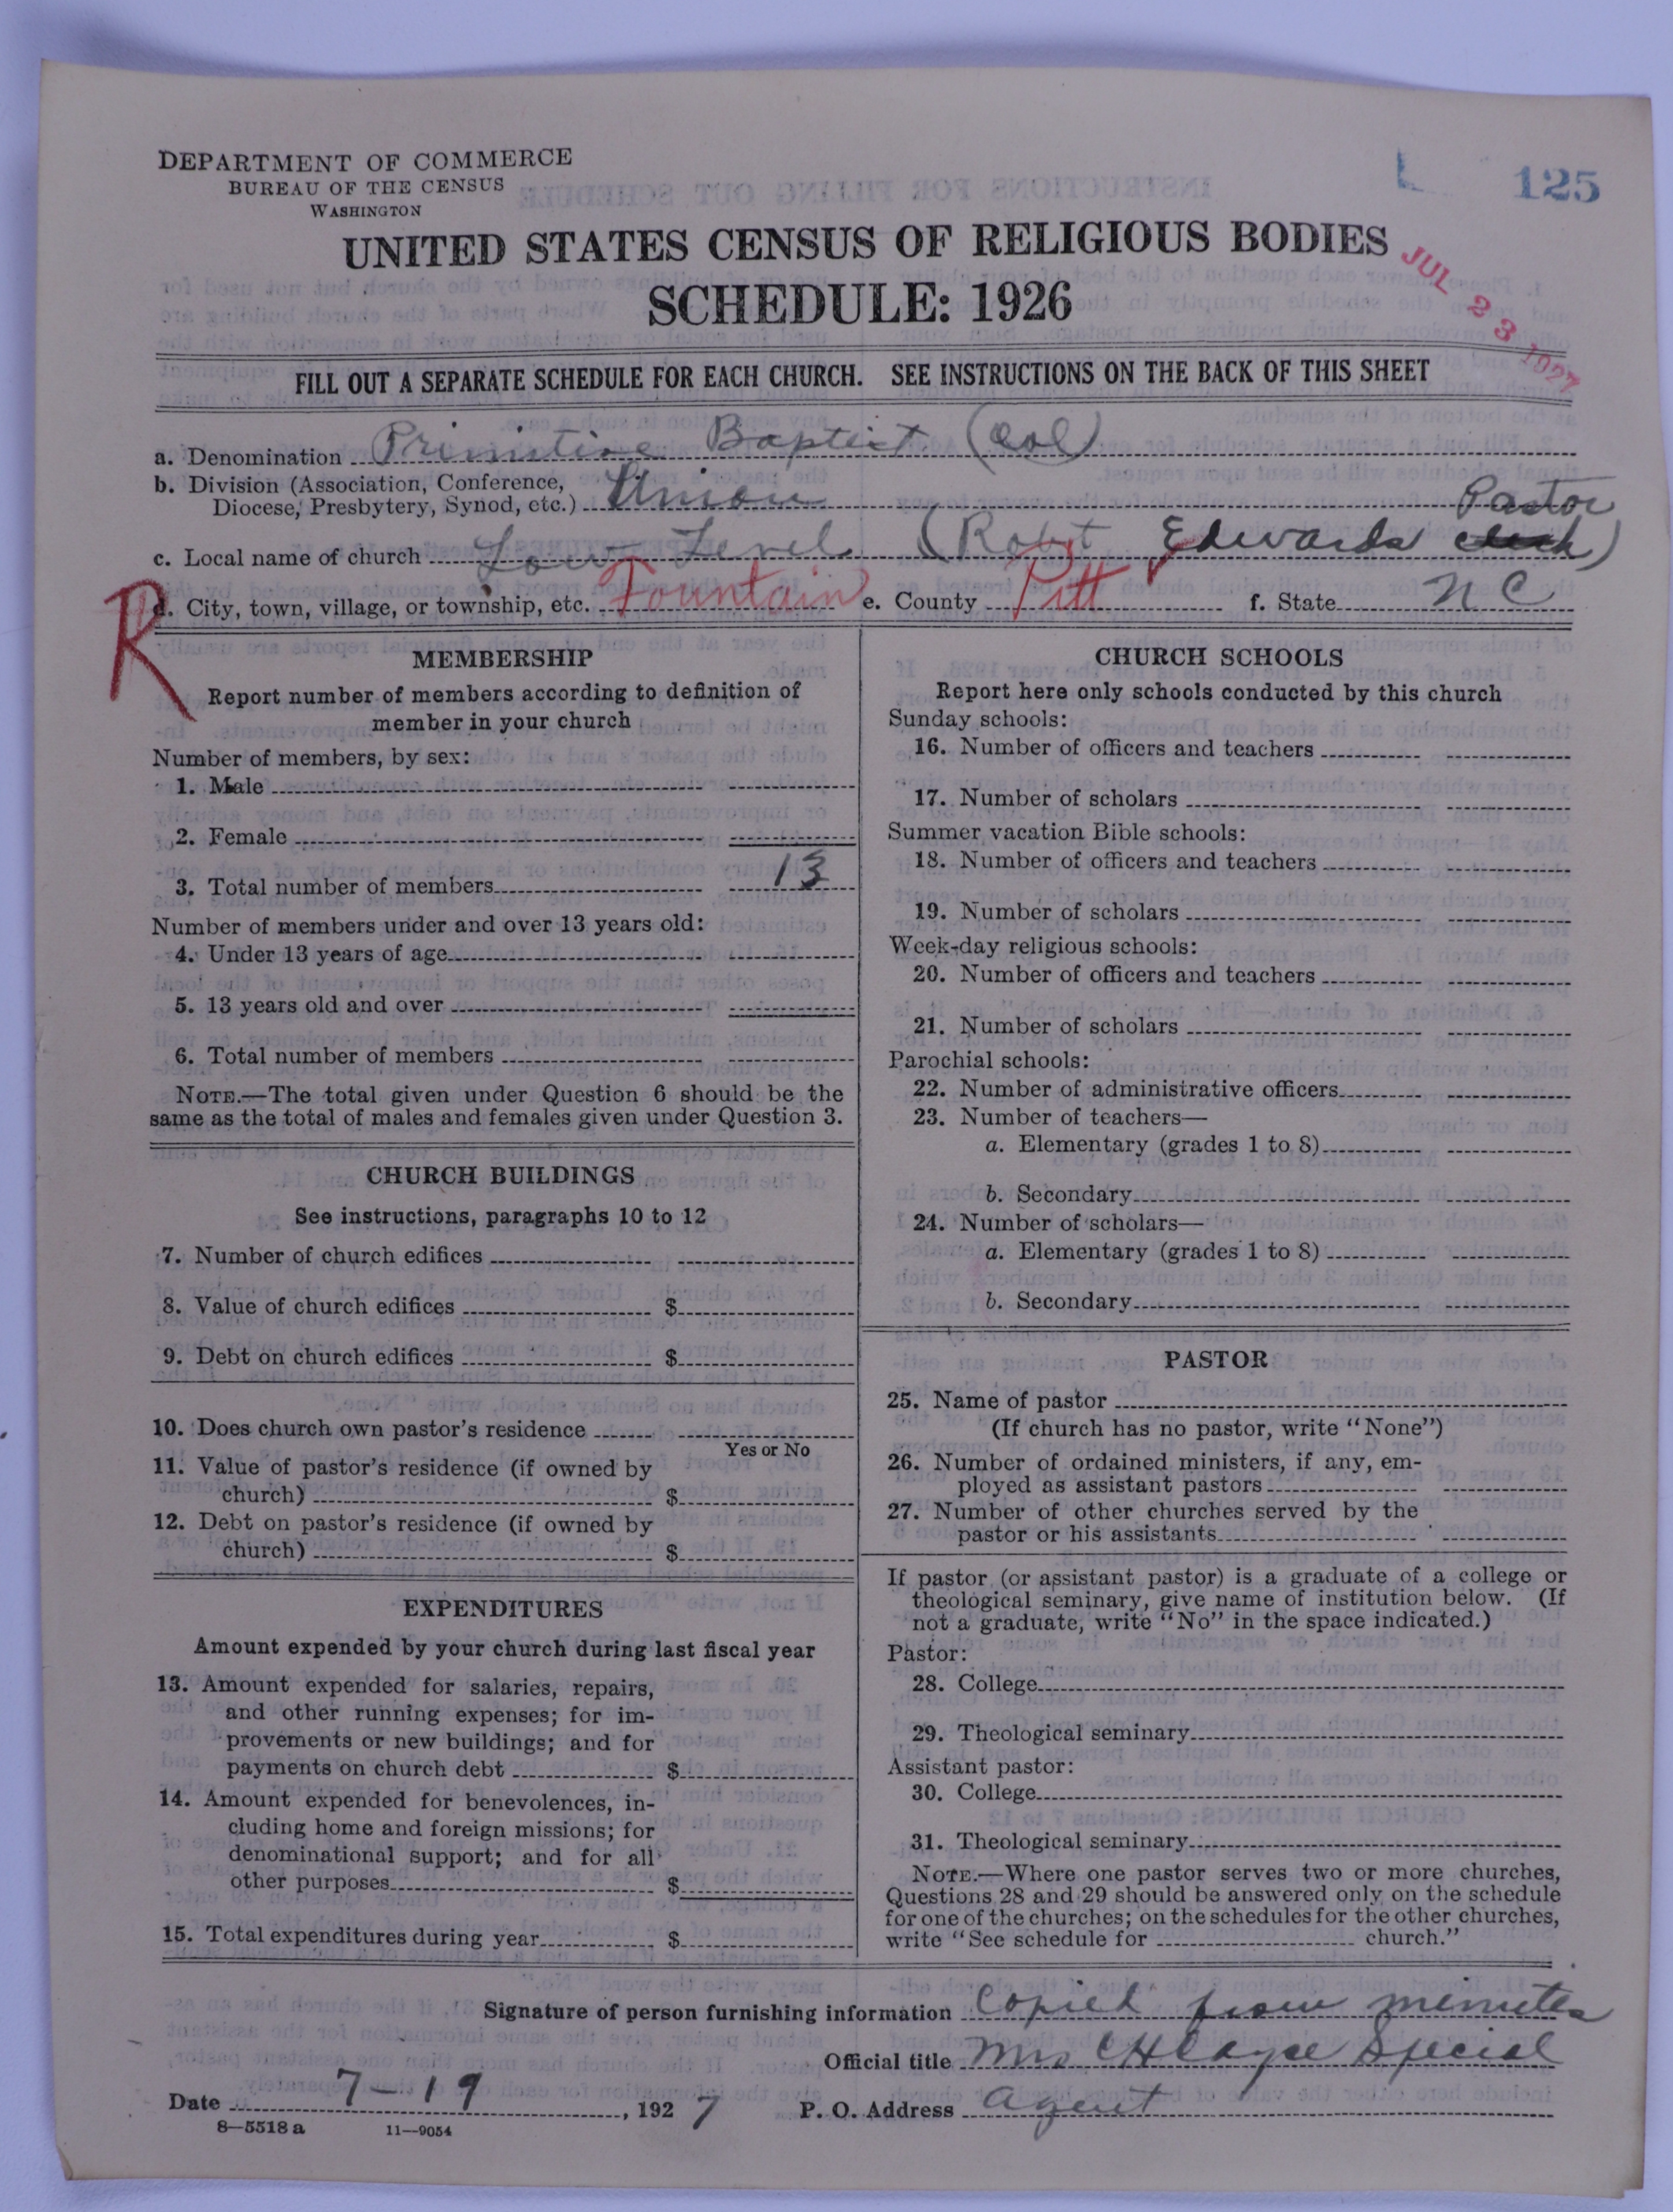 DEPARTMENT OF COMMERCE
BUREAU OF THE CENSUS
WASHINGTON
125
UNITED STATES CENSUS OF RELIGIOUS BODIES
SCHEDULE: 1926
JUL 23 1927
FILL OUT A SEPARATE SCHEDULE FOR EACH CHURCH. SEE INSTRUCTIONS ON THE BACK OF THIS SHEET
a. Denomination Primitive Baptist (Col)
b. Division (Association, Conference,
Diocese, Presbytery, Synod, etc.) Union
Pastor
c. Local name of church Low Level (Robt Edwards clerk)
R
d. City, town, village, or township, etc. Fountain e. County Pitt f. State NC
MEMBERSHIP
Report number of members according to definition of
member in your church
Number of members, by sex:
1. Male
2. Female
3. Total number of members 13
Number of members under and over 13 years old:
4. Under 13 years of age
5. 13 years old and over
6. Total number of members
NOTE.—The total given under Question 6 should be the
same as the total of males and females given under Question 3.
CHURCH BUILDINGS
See instructions, paragraphs 10 to 12
7. Number of church edifices
8. Value of church edifices $
9. Debt on church edifices $
10. Does church own pastor's residence
Yes or No
11. Value of pastor's residence (if owned by
church) $
12. Debt on pastor's residence (if owned by
church) $
EXPENDITURES
Amount expended by your church during last fiscal year
13. Amount expended for salaries, repairs,
and other running expenses; for im-
provements or new buildings; and for
payments on church debt $
14. Amount expended for benevolences, in-
cluding home and foreign missions; for
denominational support; and for all
other purposes $
15. Total expenditures during year $
CHURCH SCHOOLS
Report here only schools conducted by this church
Sunday schools:
16. Number of officers and teachers
17. Number of scholars
Summer vacation Bible schools:
18. Number of officers and teachers
19. Number of scholars
Week-day religious schools:
20. Number of officers and teachers
21. Number of scholars
Parochial schools:
22. Number of administrative officers
23. Number of teachers—
a. Elementary (grades 1 to 8)
b. Secondary
24. Number of scholars—
a. Elementary (grades 1 to 8)
b. Secondary
PASTOR
25. Name of pastor
(If church has no pastor, write "None")
26. Number of ordained ministers, if any, em-
ployed as assistant pastors
27. Number of other churches served by the
pastor or his assistants
If pastor (or assistant pastor) is a graduate of a college or
theological seminary, give name of institution below. (If
not a graduate, write "No" in the space indicated.)
Pastor:
28. College
29. Theological seminary
Assistant pastor:
30. College
31. Theological seminary
NOTE.—Where one pastor serves two or more churches,
Questions 28 and 29 should be answered only on the schedule
for one of the churches; on the schedules for the other churches,
write "See schedule for church."
Signature of person furnishing information Copied from minutes
Official title Mrs C H Cayce Special
Date 7-19, 1927 P. O. Address agent
8—5518 a 11—9054